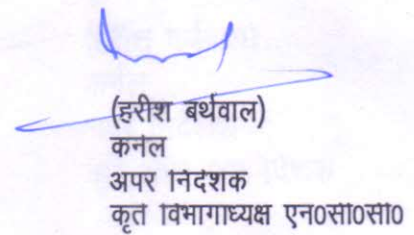 (हरीश बर्थवाल)
कर्नल
अपर निदेशक
कृते विभागाध्यक्ष एन०सी०सी०